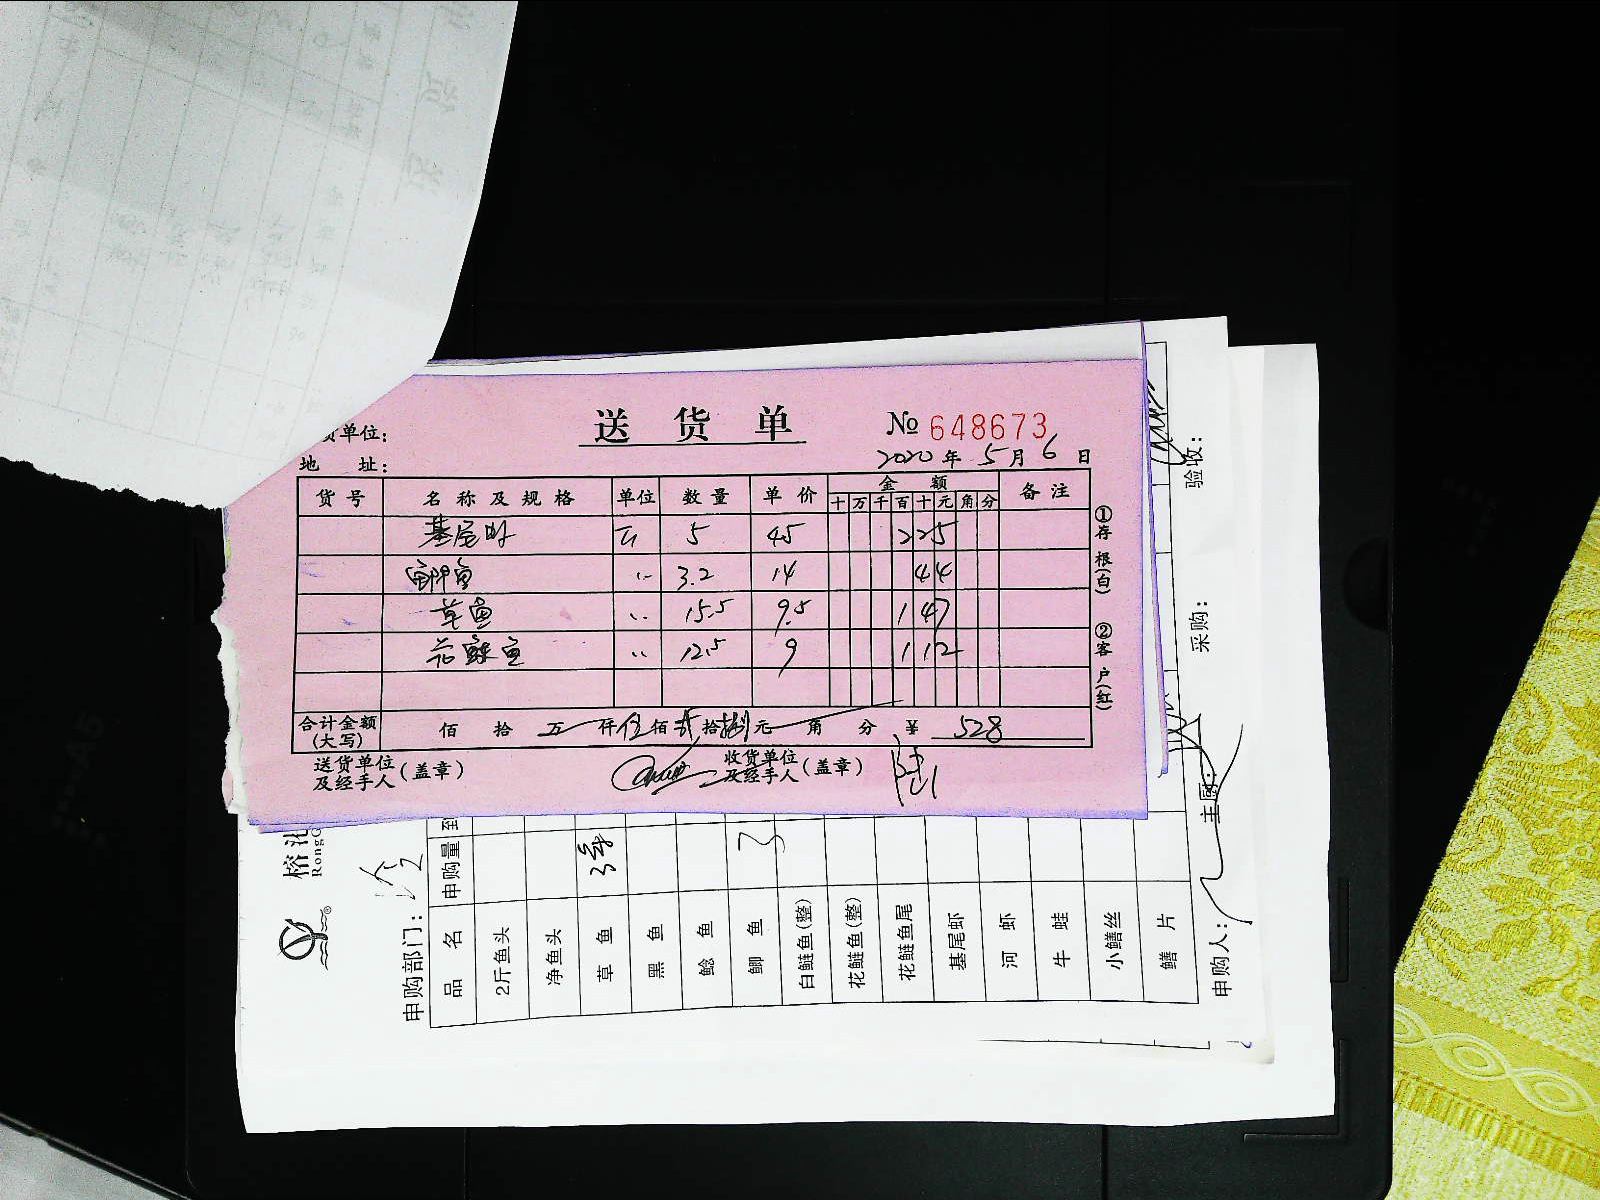 送货单 № 648673
货单位：
地 址： 2020年5月6日
货号 名称及规格 单位 数量 单价 金额 备注
十万千百十元角分
基尾虾 斤 5 45 225
鲫鱼 〃 3.2 14 44
草鱼 〃 15.5 9.5 147
花鲢鱼 〃 12.5 9 112
合计金额(大写) 佰 拾 万 仟 伍佰 贰拾捌元 角 分 ¥ 528
送货单位及经手人(盖章) 收货单位及经手人(盖章)
①存根(白) ②客户(红)
榕
Rong
申购部门：
品名 申购量
2斤鱼头
净鱼头
草鱼
黑鱼
鲶鱼
鲫鱼 3
白鲢鱼(整)
花鲢鱼(整)
花鲢鱼尾
基尾虾
河虾
牛蛙
小鳝丝
鳝片
申购人： 主厨： 采购： 验收：